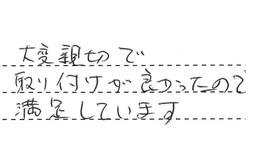 大変親切で
取り付けが良かったので
満足しています